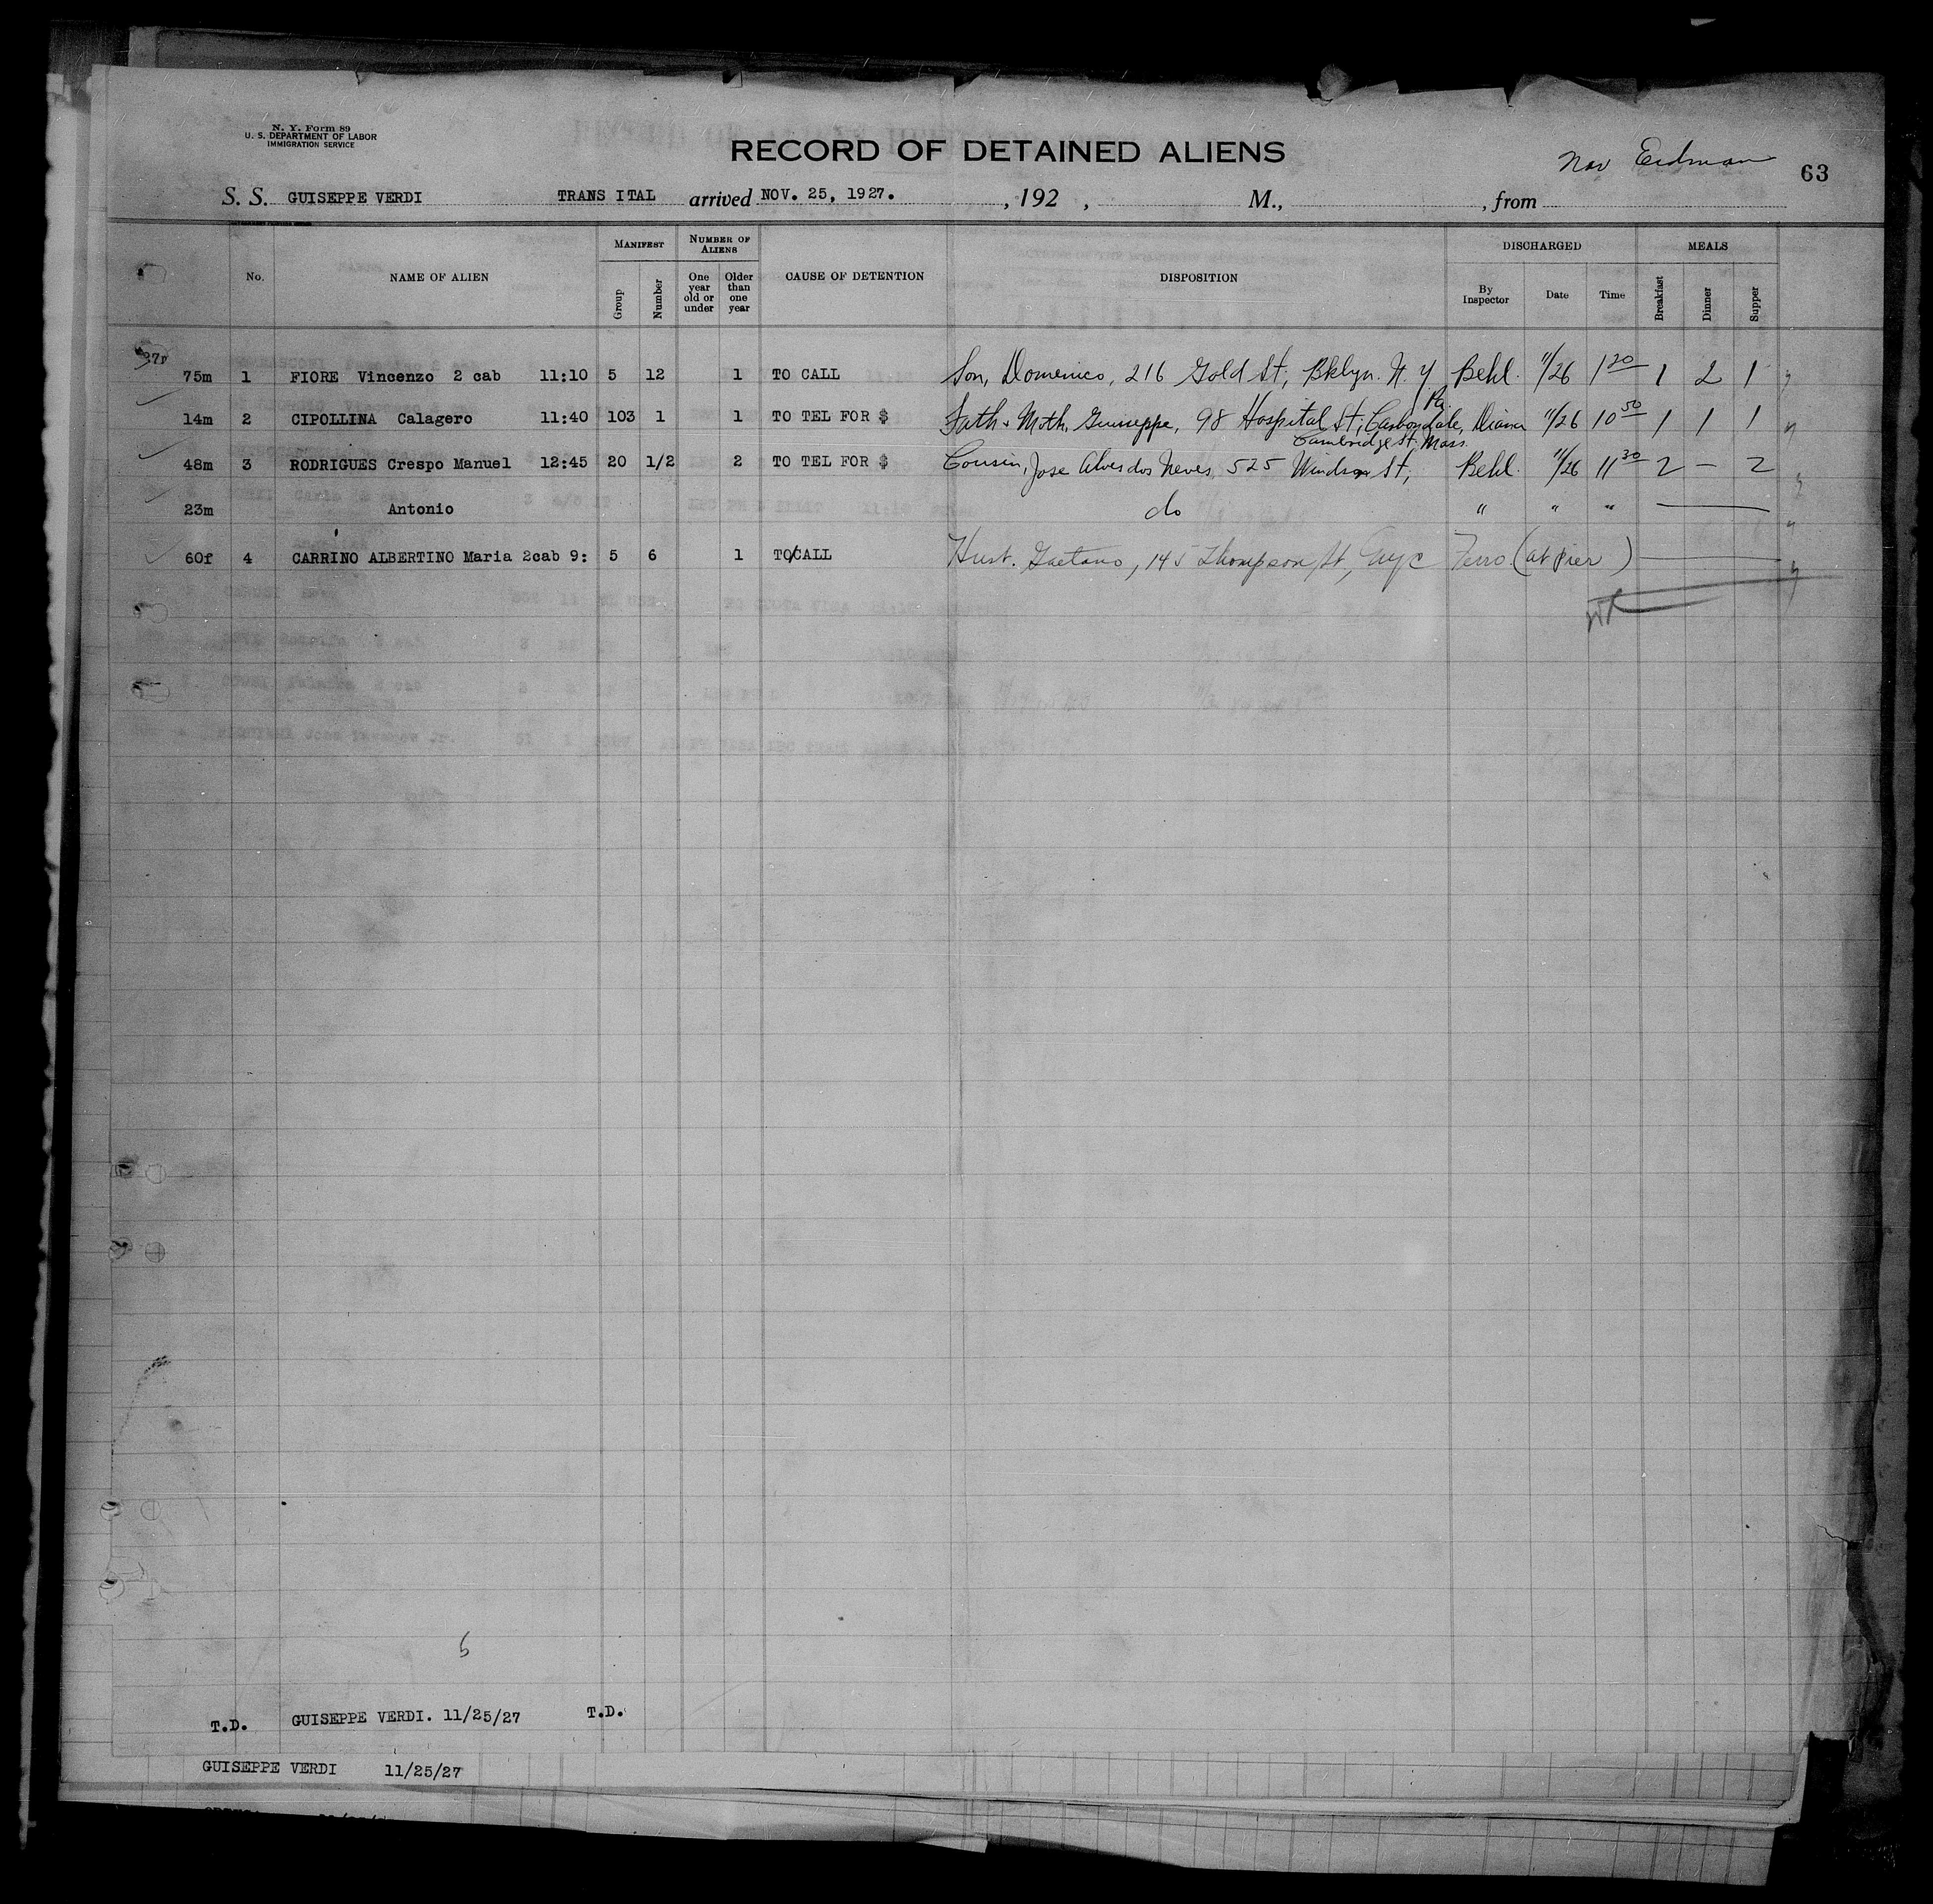 N. Y. Form 89
U. S. DEPARTMENT OF LABOR
IMMIGRATION SERVICE
RECORD OF DETAINED ALIENS
Nov Erdman 63
S. S. GUISEPPE VERDI TRANS ITAL arrived NOV. 25, 1927. , 192 , M., , from
No. NAME OF ALIEN MANIFEST Group Number NUMBER OF ALIENS One year old or under Older than one year CAUSE OF DETENTION DISPOSITION DISCHARGED By Inspector Date Time MEALS Breakfast Dinner Supper
75m 1 FIORE Vincenzo 2 cab 11:10 5 12 1 TO CALL Son, Domenico, 216 Gold St, Bklyn. N. Y Behl. 11/26 1 20 1 2 1
14m 2 CIPOLLINA Calagero 11:40 103 1 1 TO TEL FOR $ Fath + Moth, Giuseppe, 98 Hospital St, Carbondale, Pa Diana 11/26 10 50 1 1 1
Cambridge St. Mass.
48m 3 RODRIGUES Crespo Manuel 12:45 20 1/2 2 TO TEL FOR $ Cousin, Jose Alves dos Neves, 525 Windsor St, Behl. 11/26 11 30 2 — 2
23m Antonio do " " "
60f 4 CARRINO ALBERTINO Maria 2cab 9: 5 6 1 TO/CALL Husb. Gaetano, 145 Thompson St, NYC Ferro. (at pier)
5
T.D. GUISEPPE VERDI. 11/25/27 T.D.
GUISEPPE VERDI 11/25/27